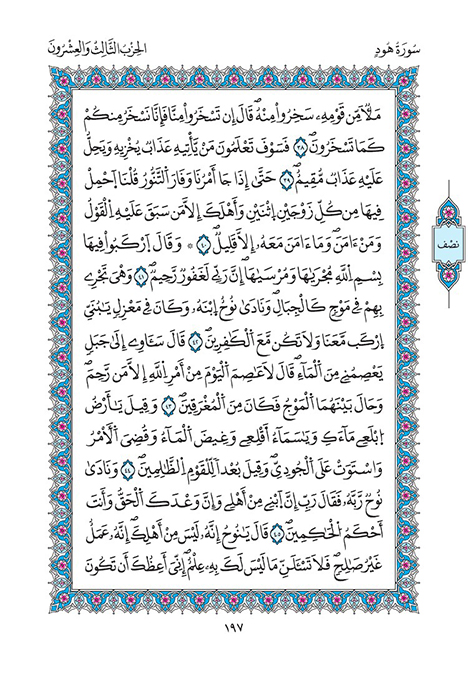 سُورَةُ هُودٍ
الحِزْبُ الثَّالِثُ وَالعِشْرُونَ
مَلَأٌ مِّن قَوْمِهِۦ سَخِرُوا۟ مِنْهُۖ قَالَ إِن تَسْخَرُوا۟ مِنَّا فَإِنَّا نَسْخَرُ مِنكُمْ
كَمَا تَسْخَرُونَۖ ٣٨ فَسَوْفَ تَعْلَمُونَ مَنْ يَّأْتِيهِ عَذَابٌ يُخْزِيهِ وَيَحِلُّ
عَلَيْهِ عَذَابٌ مُّقِيمٌۖ ٣٩ حَتَّىٰ إِذَا جَا أَمْرُنَا وَفَارَ التَّنُّورُ قُلْنَا اَحْمِلْ
فِيهَا مِن كُلِّ زَوْجَيْنِ اِثْنَيْنِ وَأَهْلَكَ إِلَّا مَن سَبَقَ عَلَيْهِ اِلْقَوْلُ
وَمَنْ ءَامَنَۖ وَمَا ءَامَنَ مَعَهُۥ إِلَّا قَلِيلٌۖ ٤٠ ۞ وَقَالَ اَرْكَبُوا۟ فِيهَا
بِسْمِ اِللَّهِ مُجْرَىٰهَا وَمُرْسَىٰهَاۖ إِنَّ رَبِّي لَغَفُورٌ رَّحِيمٌۖ ٤١ وَهْيَ تَجْرِي
نصف
بِهِمْ فِي مَوْجٍ كَالْجِبَالِۖ وَنَادَىٰ نُوحٌ اِبْنَهُۥ وَكَانَ فِي مَعْزِلٍ يَٰبُنَيِّ
اِرْكَب مَّعَنَا وَلَا تَكُن مَّعَ اَلْكَٰفِرِينَۖ ٤٢ قَالَ سَـَٔاوِي إِلَىٰ جَبَلٍ
يَعْصِمُنِي مِنَ اَلْمَآءِۖ قَالَ لَا عَاصِمَ اَلْيَوْمَ مِنْ أَمْرِ اِللَّهِ إِلَّا مَن رَّحِمَۖ
وَحَالَ بَيْنَهُمَا اَلْمَوْجُ فَكَانَ مِنَ اَلْمُغْرَقِينَۖ ٤٣ وَقِيلَ يَٰأَرْضُ
اِبْلَعِي مَآءَكِ وَيَٰسَمَآءُ اَقْلِعِي وَغِيضَ اَلْمَآءُ وَقُضِيَ اَلْأَمْرُ
وَاسْتَوَتْ عَلَى اَلْجُودِيِّۖ وَقِيلَ بُعْدًا لِّلْقَوْمِ اِلظَّٰلِمِينَۖ ٤٤ وَنَادَىٰ
نُوحٌ رَّبَّهُۥ فَقَالَ رَبِّ إِنَّ اَبْنِي مِنْ أَهْلِي وَإِنَّ وَعْدَكَ اَلْحَقُّ وَأَنتَ
أَحْكَمُ اُلْحَٰكِمِينَۖ ٤٥ قَالَ يَٰنُوحُ إِنَّهُۥ لَيْسَ مِنْ أَهْلِكَۖ إِنَّهُۥ عَمَلٌ
غَيْرُ صَٰلِحٍۖ فَلَا تَسْـَٔلْنِ مَا لَيْسَ لَكَ بِهِۦ عِلْمٌۖ إِنِّيَ أَعِظُكَ أَن تَكُونَ
١٩٧